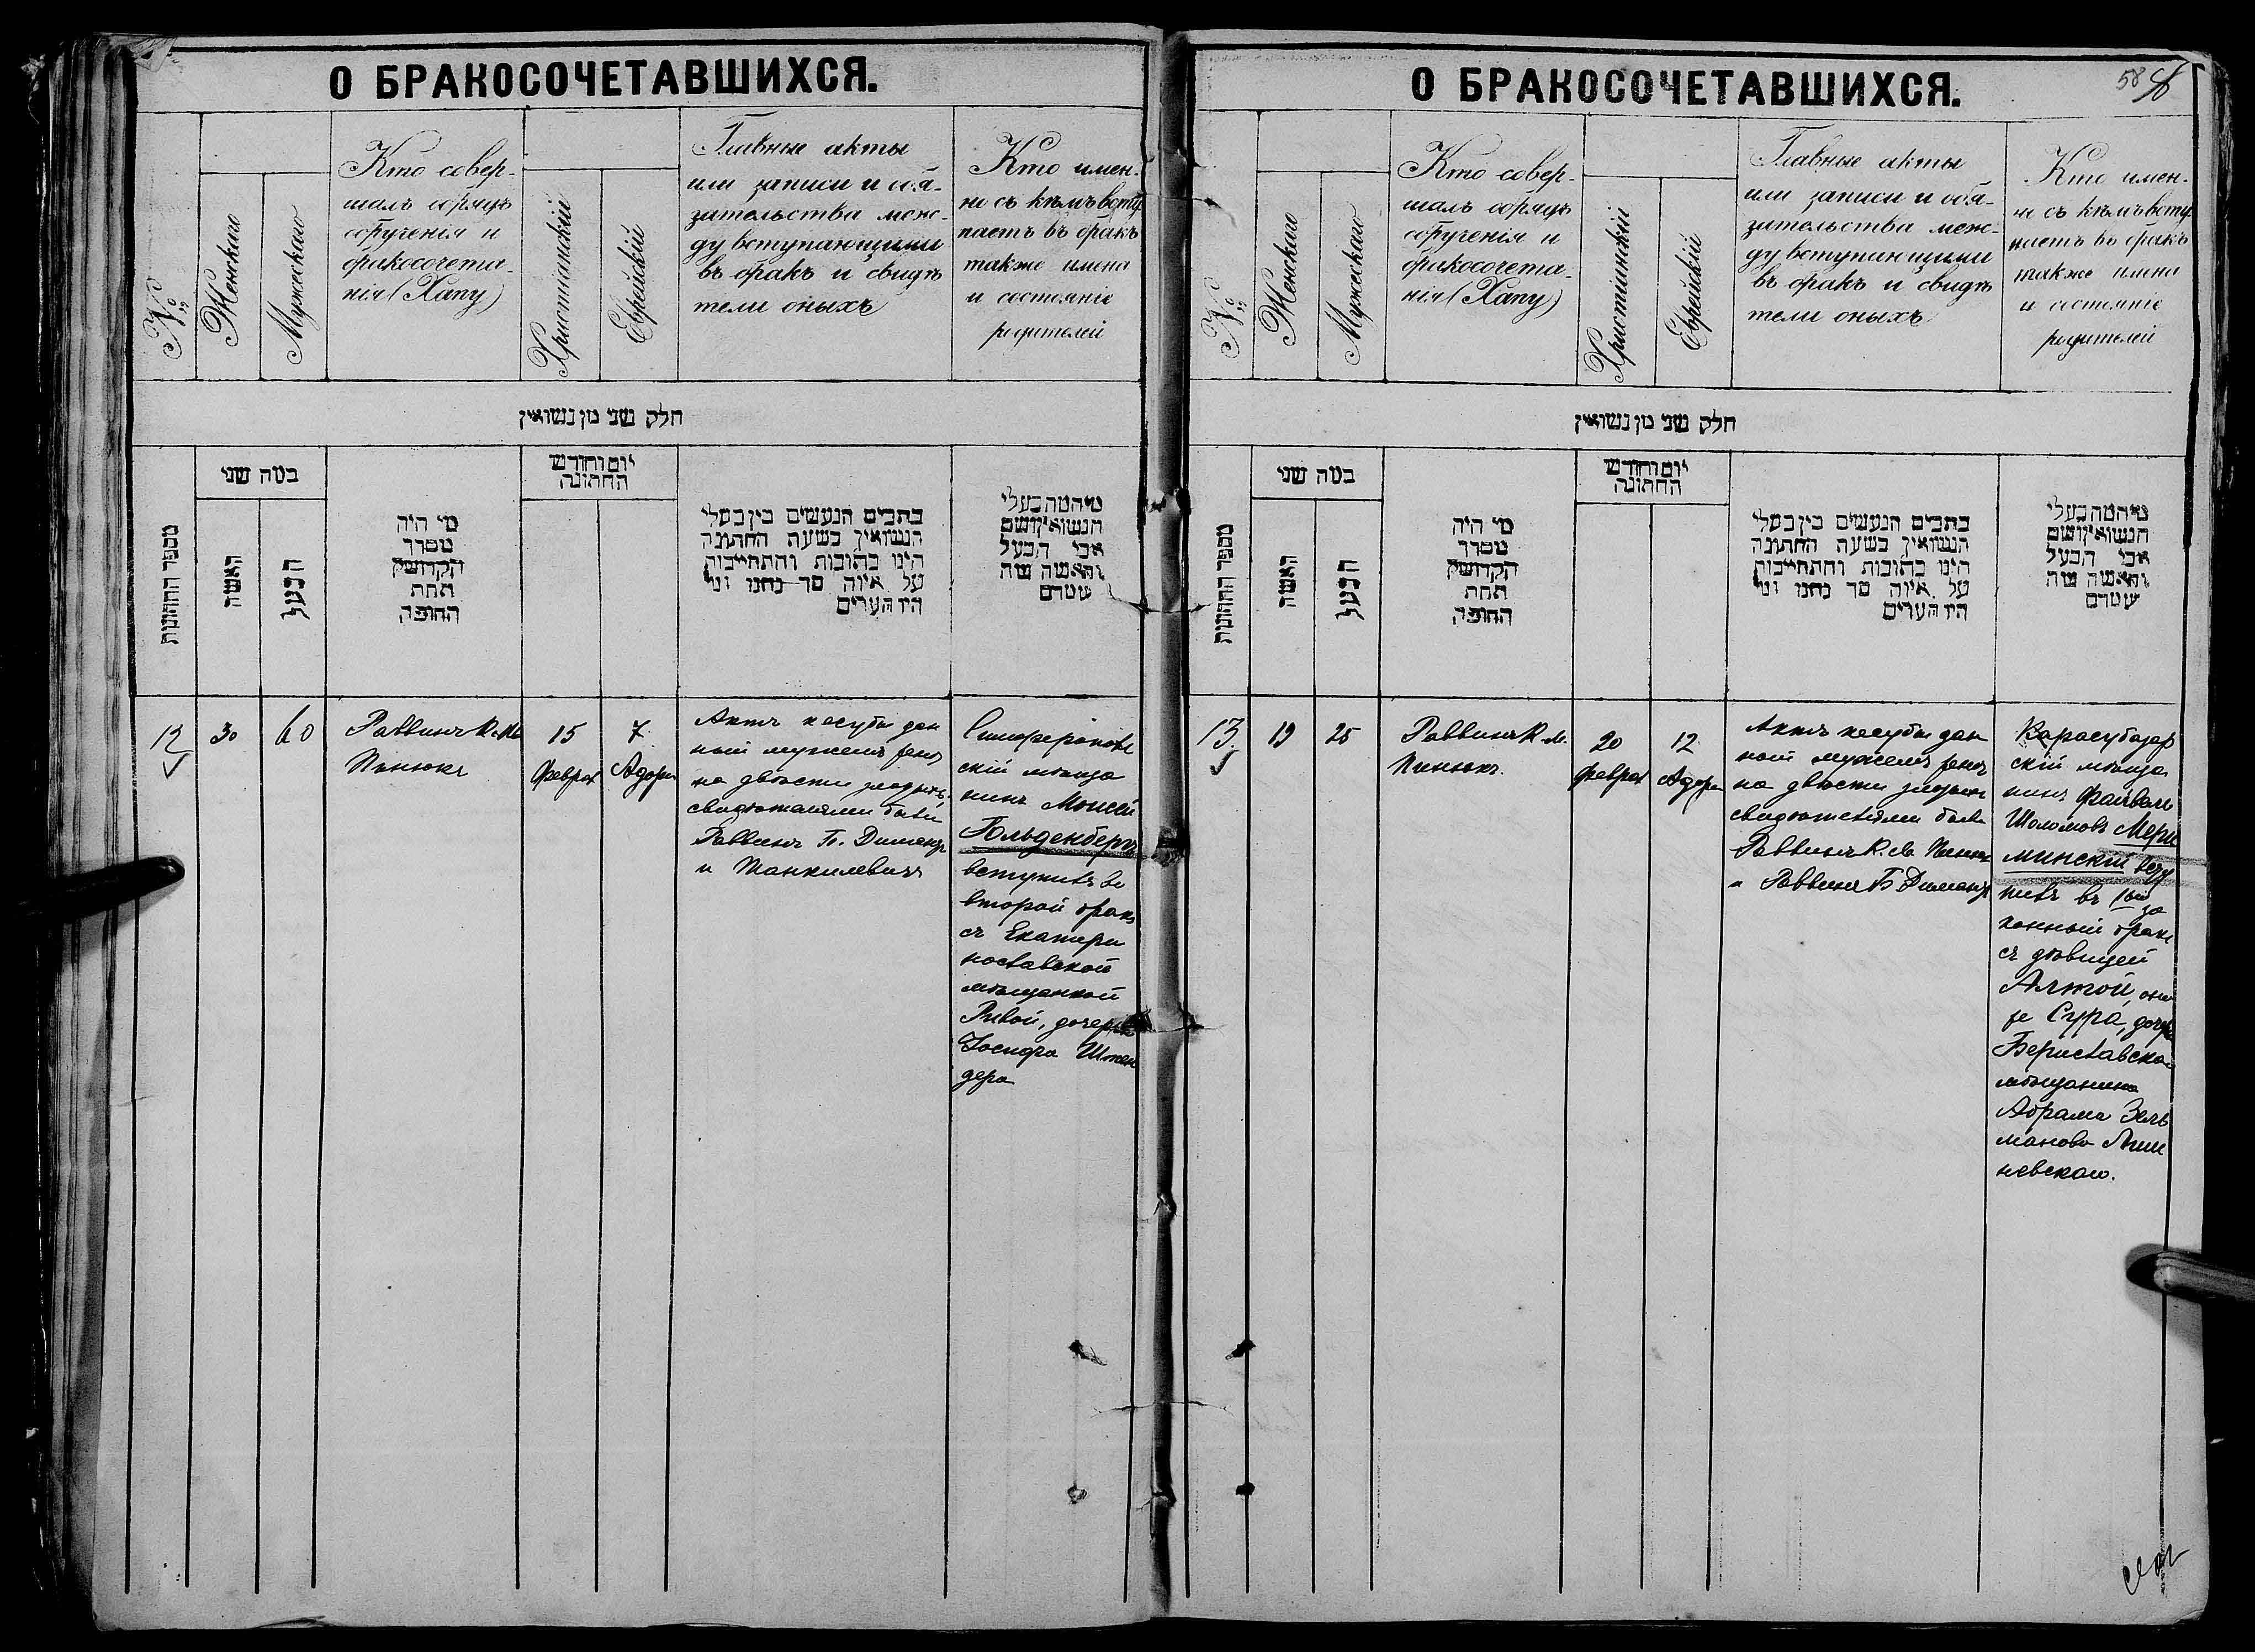 О БРАКОСОЧЕТАВШИХСЯ.
№
Женскаго
Мужескаго
Кто совер-
шалъ обрядъ
обрученія и
бракосочета-
нія (Хапу)
Христіанскій
Еврейскій
Главные акты
или записи и обя-
зательства меж-
ду вступающими
въ бракъ и свидѣ
тели оныхъ
Кто имен-
но съ кѣмъ всту
паетъ въ бракъ
также имена
и состояніе
родителей
חלק שני מן נשואין
מספר החתונות
במה שני
האשה
הבעל
מי היה
מסדר
הקדושין
תחת
החופה
יום וחודש
החתונה
כתבים הנעשים בין בעלי
הנשואין בשעת החתונה
היינו כתובות והתחייבות
על איזה סך נתנו ומי
היו העדים
מי המה בעלי
הנשואין ושם
אבי הבעל
והאשה מה
שמם
12
30
60
Раввинъ К. М.
Пинюкъ
15
Феврал
7
Адора
Актъ кесубы дан
ный мужемъ женѣ
на двѣсти злотыхъ,
свидѣтелями были
Раввинъ Б. Димантъ
и Манкилевичъ
Симферопольс
скій мѣща
нинъ Моисей
Гольденбергъ
вступилъ во
второй бракъ
съ Екатери
нославской
мѣщанкой
Ривой, дочерью
Іосифа Штен
дера
О БРАКОСОЧЕТАВШИХСЯ.
58
№
Женскаго
Мужескаго
Кто совер-
шалъ обрядъ
обрученія и
бракосочета-
нія (Хапу)
Христіанскій
Еврейскій
Главные акты
или записи и обя-
зательства меж-
ду вступающими
въ бракъ и свидѣ
тели оныхъ
Кто имен-
но съ кѣмъ всту
паетъ въ бракъ
также имена
и состояніе
родителей
חלק שני מן נשואין
מספר החתונות
במה שני
האשה
הבעל
מי היה
מסדר
הקדושין
תחת
החופה
יום וחודש
החתונה
כתבים הנעשים בין בעלי
הנשואין בשעת החתונה
היינו כתובות והתחייבות
על איזה סך נתנו ומי
היו העדים
מי המה בעלי
הנשואין ושם
אבי הבעל
והאשה מה
שמם
13
19
25
Раввинъ К. М.
Пинюкъ.
20
Феврал
12
Адора
Актъ кесубы дан
ный мужемъ женѣ
на двѣсти злотыхъ
свидѣтелями были
Раввинъ К. М. Пинюкъ
и Раввинъ Б. Димантъ
Карасубазар
скій мѣща
нинъ Файвель
Шоломовъ Мери
минскій всту
пилъ въ 1ый за
конный бракъ
съ дѣвицей
Алтой, она
же Сура, дочерь
Бериславскаго
мѣщанина
Абрама Зель
манова Агин
невскаго.